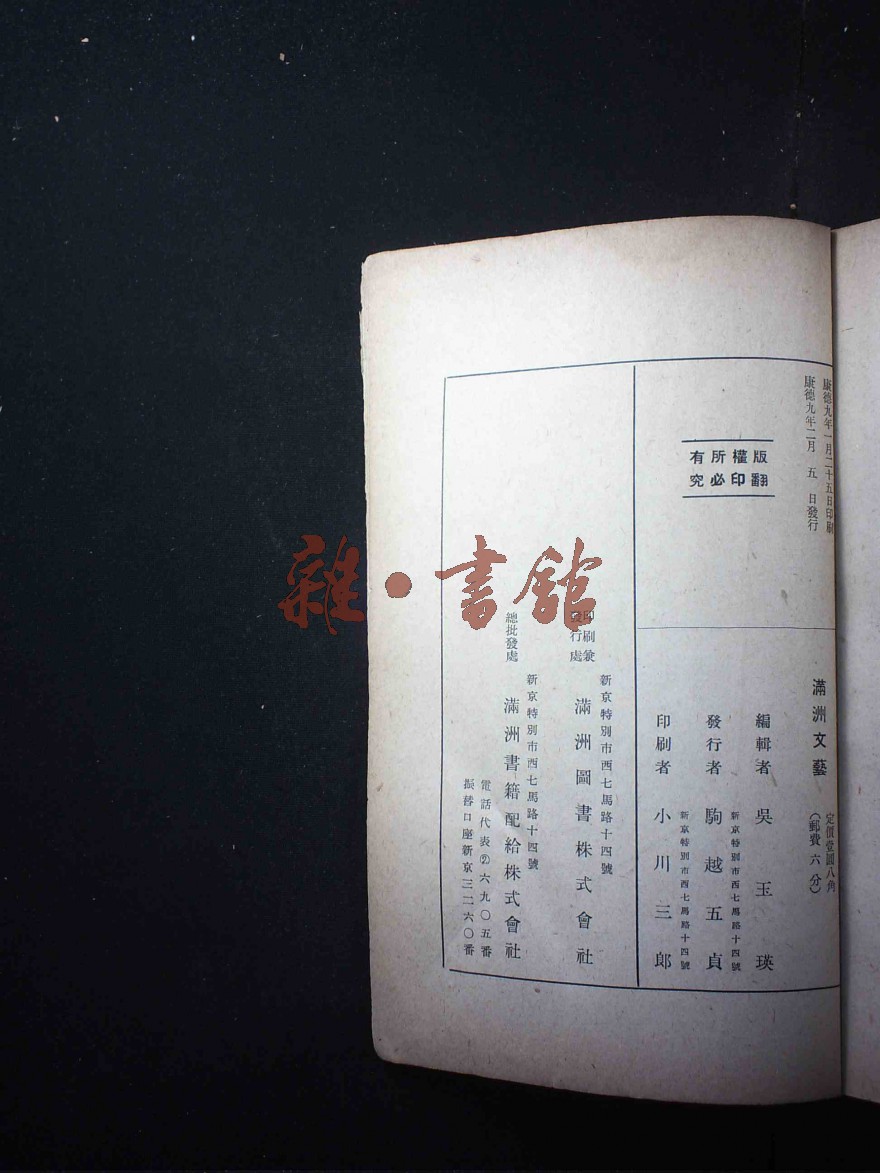 康德九年一月二十五日印刷
康德九年二月五日發行
版權所有
翻印必究
滿洲文藝
定價壹圓八角
（郵費六分）
編輯者 吳玉瑛
新京特別市西七馬路十四號
發行者 駒越五貞
新京特別市西七馬路十四號
印刷者 小川三郎
新京特別市西七馬路十四號
印刷兼
發行處
滿洲圖書株式會社
新京特別市西七馬路十四號
總批發處 滿洲書籍配給株式會社
電話代表②六九〇五番
振替口座新京三二六〇番
雜·書館